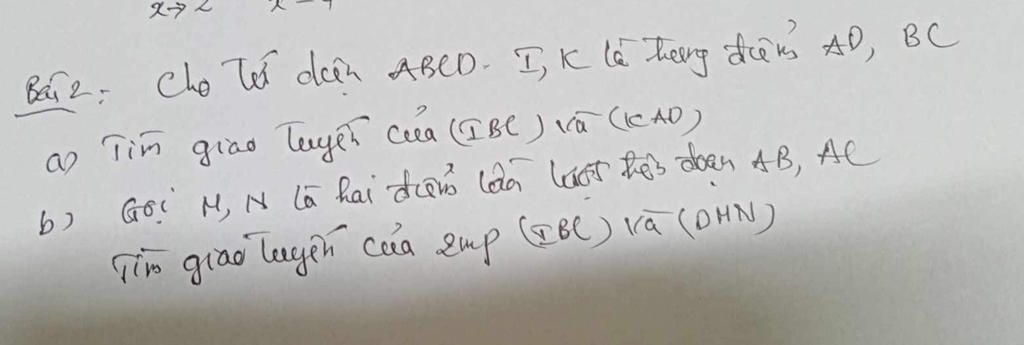 x→2
Bài 2: Cho Tứ diện ABCD. I, K là trung điểm AD, BC
a) Tìm giao tuyến của (IBC) và (KAD)
b) Gọi M, N là hai điểm lần lượt trên đoạn AB, AC
Tìm giao tuyến của 2mp (IBC) và (DMN)